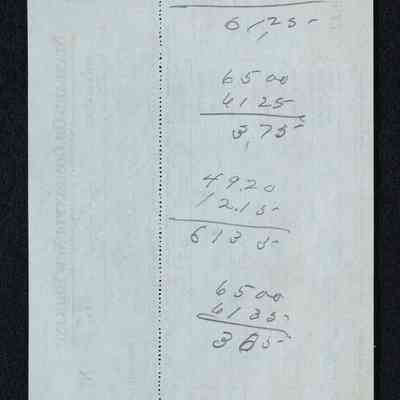 61,25
6500
6125
3,75
49.20
12.15
6135
6500
6135
365